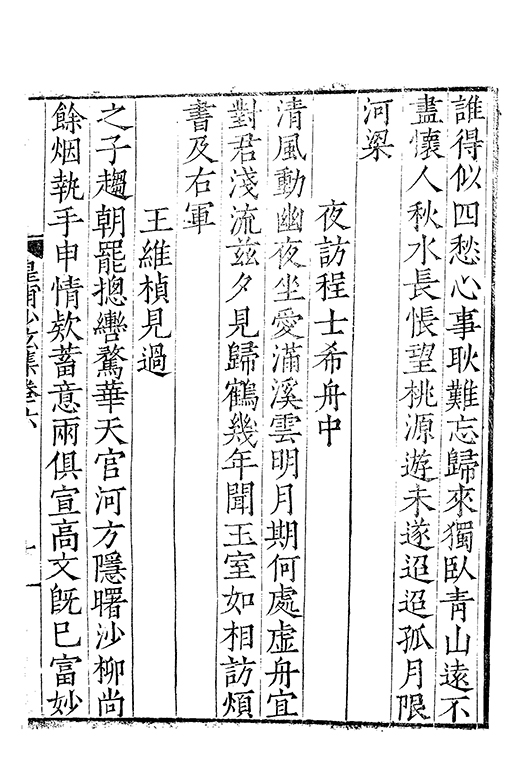 誰得似四愁心事耿難忘歸來獨臥青山遠不
盡懷人秋水長悵望桃源遊未遂迢迢孤月限
河梁
夜訪程士希舟中
清風動幽夜坐愛滿溪雲明月期何處虛舟宜
對君淺流兹夕見歸鶴幾年聞玉室如相訪煩
書及右軍
王維楨見過
之子趨朝罷摠轡騖華天宫河方隱曙沙柳尚
餘烟執手申情欵蓄意兩俱宣高文旣已富妙
皇甫少玄集卷六